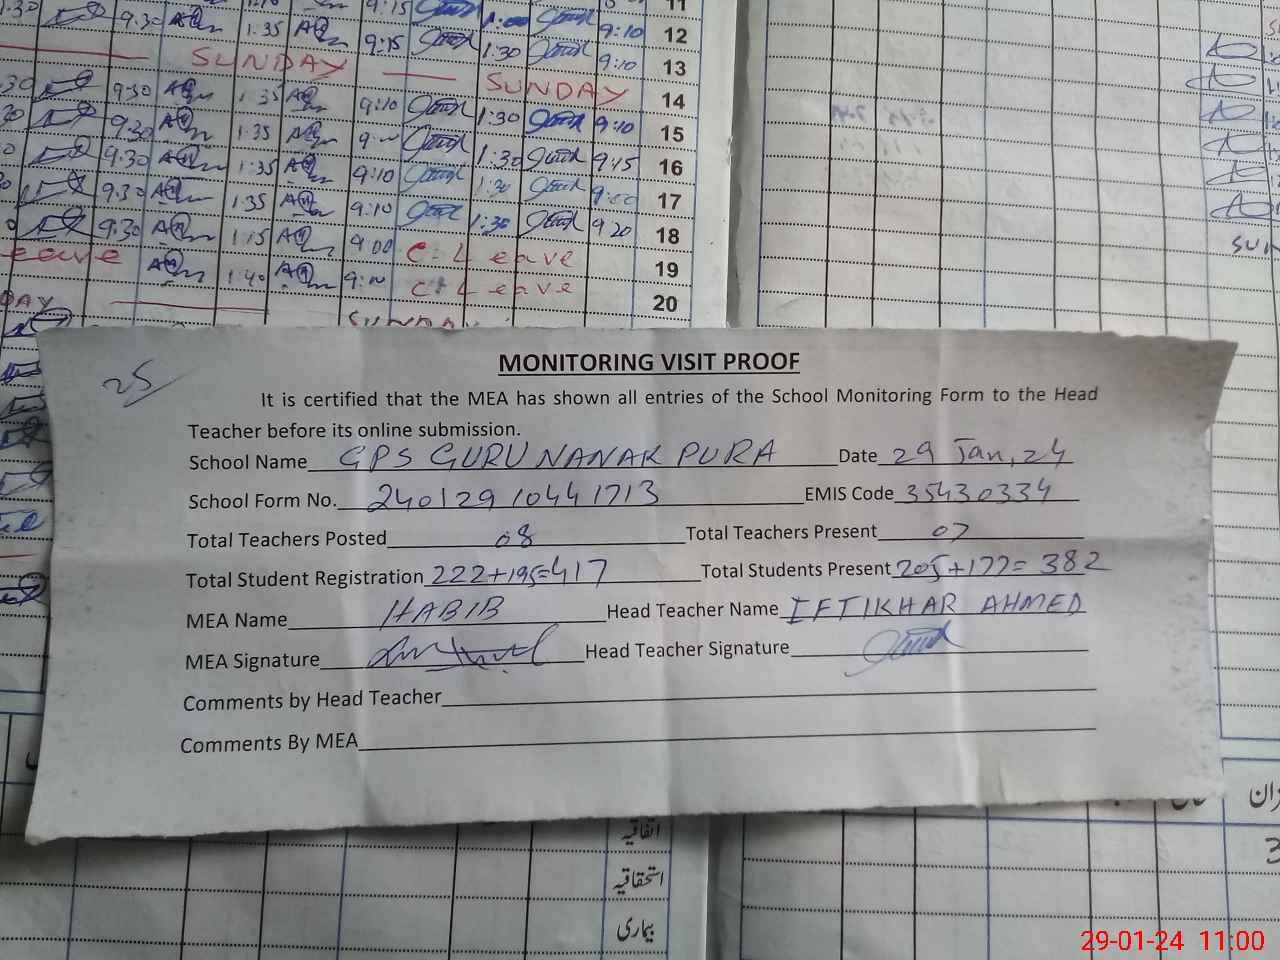 9:15 1:00 9:10 11
1:30 9.30 1.35 9:15 1:30 9:10 12
SUNDAY SUNDAY 13
9:30 1:35 9:10 1:30 9:10 14
9.30 1.35 1:30 9:15 15
9.30 1:35 9:10 1:30 9:00 16
9.30 1.35 9:10 1:30 9 20 17
9.30 1:15 9 00 C. Leave 18
eave 1:40 C. Leave 19
DAY SUNDAY 20
25
MONITORING VISIT PROOF
It is certified that the MEA has shown all entries of the School Monitoring Form to the Head
Teacher before its online submission.
School Name GPS GURU NANAK PURA Date 29 Jan, 24
School Form No. 24012910441713 EMIS Code 35430334
Total Teachers Posted 08 Total Teachers Present 07
Total Student Registration 222+195=417 Total Students Present 205+177= 382
MEA Name HABIB Head Teacher Name IFTIKHAR AHMED
MEA Signature Head Teacher Signature
Comments by Head Teacher
Comments By MEA
اتفاقیہ
استحقاقیہ
بیماری
29-01-24 11:00